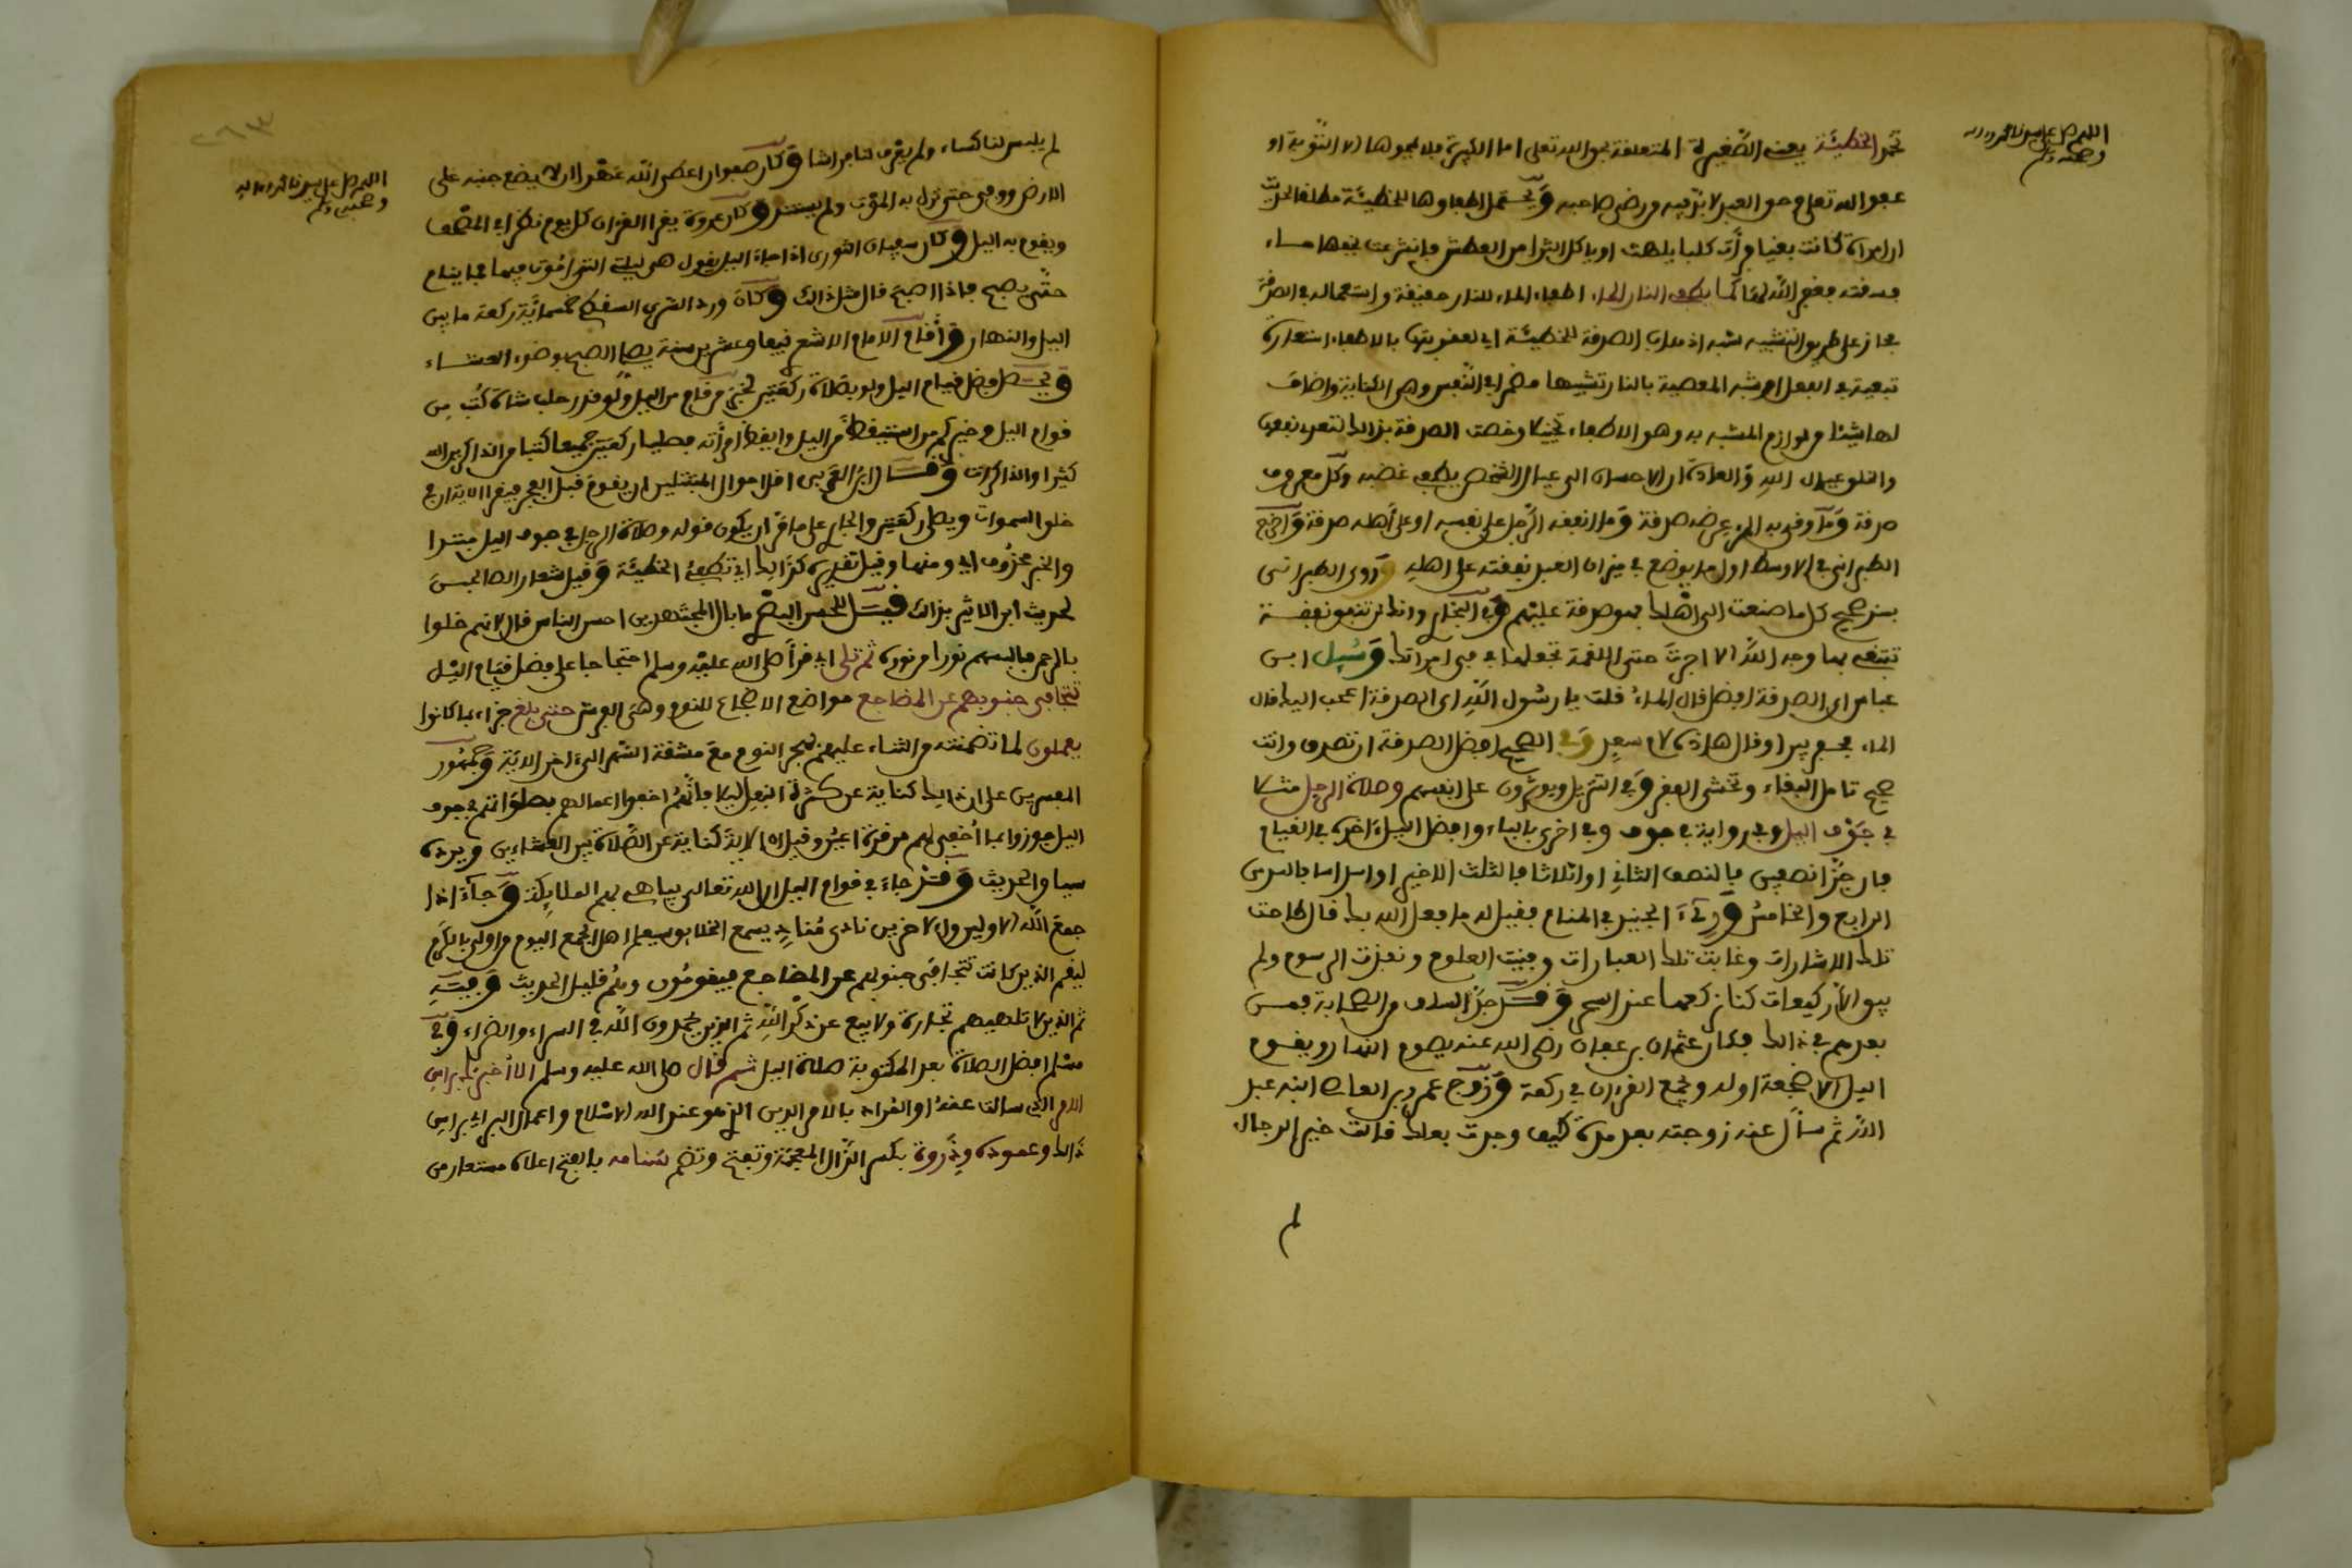 اللهم صل على سيدنا محمد وءاله
وصحبه وسلم
تمحو الخطيئة يعني الصغيرة المتعلقة بحق الله تعلى اما الكبيرة فلا يمحوها الا التوبة او
عفو الله تعلى وحق العبد لابد فيه من رضى صاحبه ويحتمل اطفاوها للخطيئة مطلقا لحديث
ان امراة كانت بغيا فرأت كلبا يلهث او ياكل الثرا من العطش فانتزعت خفها ماء
فسقته فغفر الله لها كما يطفئ النار الماء اطفاء الماء للنار حقيقة واستعماله في الصدقة
مجاز على طريق التشبيه شبه اذهاب الصدقة للخطيئة اي لعقوبتها بالاطفاء استعارة
تبعية في الفعل او شبه المعصية بالنار تشبيها مضمرا في النفس وهي الكناية واضاف
لها شيئا من لوازم المشبه به وهو الاطفاء تخييلا وخصت الصدقة بذالك لتعدي نفعها
والخلق عيال الله والعادة ان الاحسان الى عيال الشخص يطفئ غضبه وكل معروف
صدقة وما وقى به المرء عرضه صدقة وما انفقه الرجل على نفسه او على أهله صدقة واخرج
الطبراني في الاوسط اول ما يوضع في ميزان العبد نفقته على اهله وروى الطبراني
بسند صحيح كل ما صنعت الى اهلك فهو صدقة عليهم وفي البخاري وانك لن تنفق نفقة
تبتغي بها وجه الله الا اجرت حتى اللقمة تجعلها في في امراتك وسئل ابن
عباس اي الصدقة افضل قال الماء قلت يا رسول الله اي الصدقة اعجب اليك قال
الماء فحفر بيرا وقال هاذه لام سعد وفي الصحيح افضل الصدقة ان تصدق وانت
صحيح تامل البقاء وتخشى الفقر وفي التنزيل ويوثرون على انفسهم وصلاة الرجل مثلا
في جوف اليل وفي رواية في جوف وفي اخرى بالباء وافضل اليل ءاخره في القيام
فان جزا نصفين فالنصف الثاني او اثلاثا فالثلث الاخير او اسداسا فالسدس
الرابع والخامس ورءى الجنيد في المنام فقيل له ما فعل الله بك قال طاحت
تلك الاشارات وغابت تلك العبارات وفنيت العلوم ونفدت الرسوم ولم
يبق الا ركيعات كنا نركعها عند السحر وقد جد السلف من الصحابة فمن
بعدهم في ذالك فكان عثمان بن عفان رضي الله عنه يصوم النهار ويقوم
اليل الا هجعة اوله ويجمع القرءان في ركعة وزوج عمرو بن العاص ابنه عبد
الله ثم سأل عنه زوجته بعد مدة كيف وجدت بعلك قالت خير الرجال
لم
اللهم صل على سيدنا محمد وءاله
وصحبه وسلم
٢٦٣
لم يلبس لنا كساء ولم يعرف لنا فراشا وكان صفوان اعطى الله عهدا ان لا يضع جنبه على
الارض ووفى حتى نزل به الموت ولم يستند وكان عروة يقرا القرءان كل يوم نظرا في المصحف
ويقوم به اليل وكان سفيان الثوري اذا جاء اليل يقول هي ليلتي التي اموت فيها فما ينام
حتى يصبح فاذا اصبح قال مثل ذالك وكان ورد السري السقطي خمسمائة ركعة ما بين
اليل والنهار واقام الامام الاشعري نيفا وعشرين سنة يصلي الصبح بوضوء العشاء
ويحصل فضل قيام اليل ولو بصلاة ركعتين لخبر من قام من اليل ولو قدر حلب شاة كتب من
قوام اليل وخبر كم من استيقظ من اليل وايقظ امرأته فصليا ركعتين جميعا كتبا من الذاكرين الله
كثيرا والذاكرات وقال ابن العربي اقل احوال المتبتلين ان يقوم قبل الفجر فيقرا الاية ان في
خلق السموات ويصلي ركعتين والجار على ما مر ان يكون قوله وصلاة الرجل في جوف اليل مبتدا
والخبر محذوف اي ومنها وقيل تقديره كذالك اي تطفئ الخطيئة وقيل شعار الصالحين
لحديث ابن الاثير بذالك قيل للحسن البصري ما بال المجتهدين احسن الناس قال لانهم خلوا
بالرحمن فالبسهم نورا من نوره ثم تلى اي قرأ صلى الله عليه وسلم احتجاجا على فضل قيام اليل
تتجافى جنوبهم عن المضاجع مواضع الاضجاع للنوم وهي الفرش حتى بلغ جزاء بما كانوا
يعملون لما تضمنته من الثناء عليهم بهجر النوم مع مشقة السهر الى ءاخر الاية وجمهور
المفسرين على ان ذالك كناية عن كثرة النفل ليلا فانهم اخفوا اعمالهم بصلواتهم في جوف
اليل فجوزوا بما أخفي لهم من قرة اعين وقيل ان الاية كناية عن الصلاة بين العشاءين ويرده
سياق الحديث وقد جاء في قوام اليل ان الله تعالى يباهي بهم الملائكة وجاء اذا
جمع الله الاولين والاخرين نادى مناد يسمع الخلائق سيعلم اهل الجمع اليوم من اولى بالكرم
ليقم الذين كانت تتجافى جنوبهم عن المضاجع فيقومون وهم قليل الحديث وفيه
ثم الذين لا تلهيهم تجارة ولا بيع عن ذكر الله ثم الذين يحمدون الله في السراء والضراء وفي
مسلم افضل الصلاة بعد المكتوبة صلاة اليل ثم قال صلى الله عليه وسلم الا أخبرك براس
الامر الذي سالت عنه او المراد بالامر الدين الذي هو عند الله الاسلام واعمال البر اي براس
ذالك وعموده وذروة بكسر الذال المعجمة وتفتح وتضم سنامه بالفتح اعلاه مستعار من